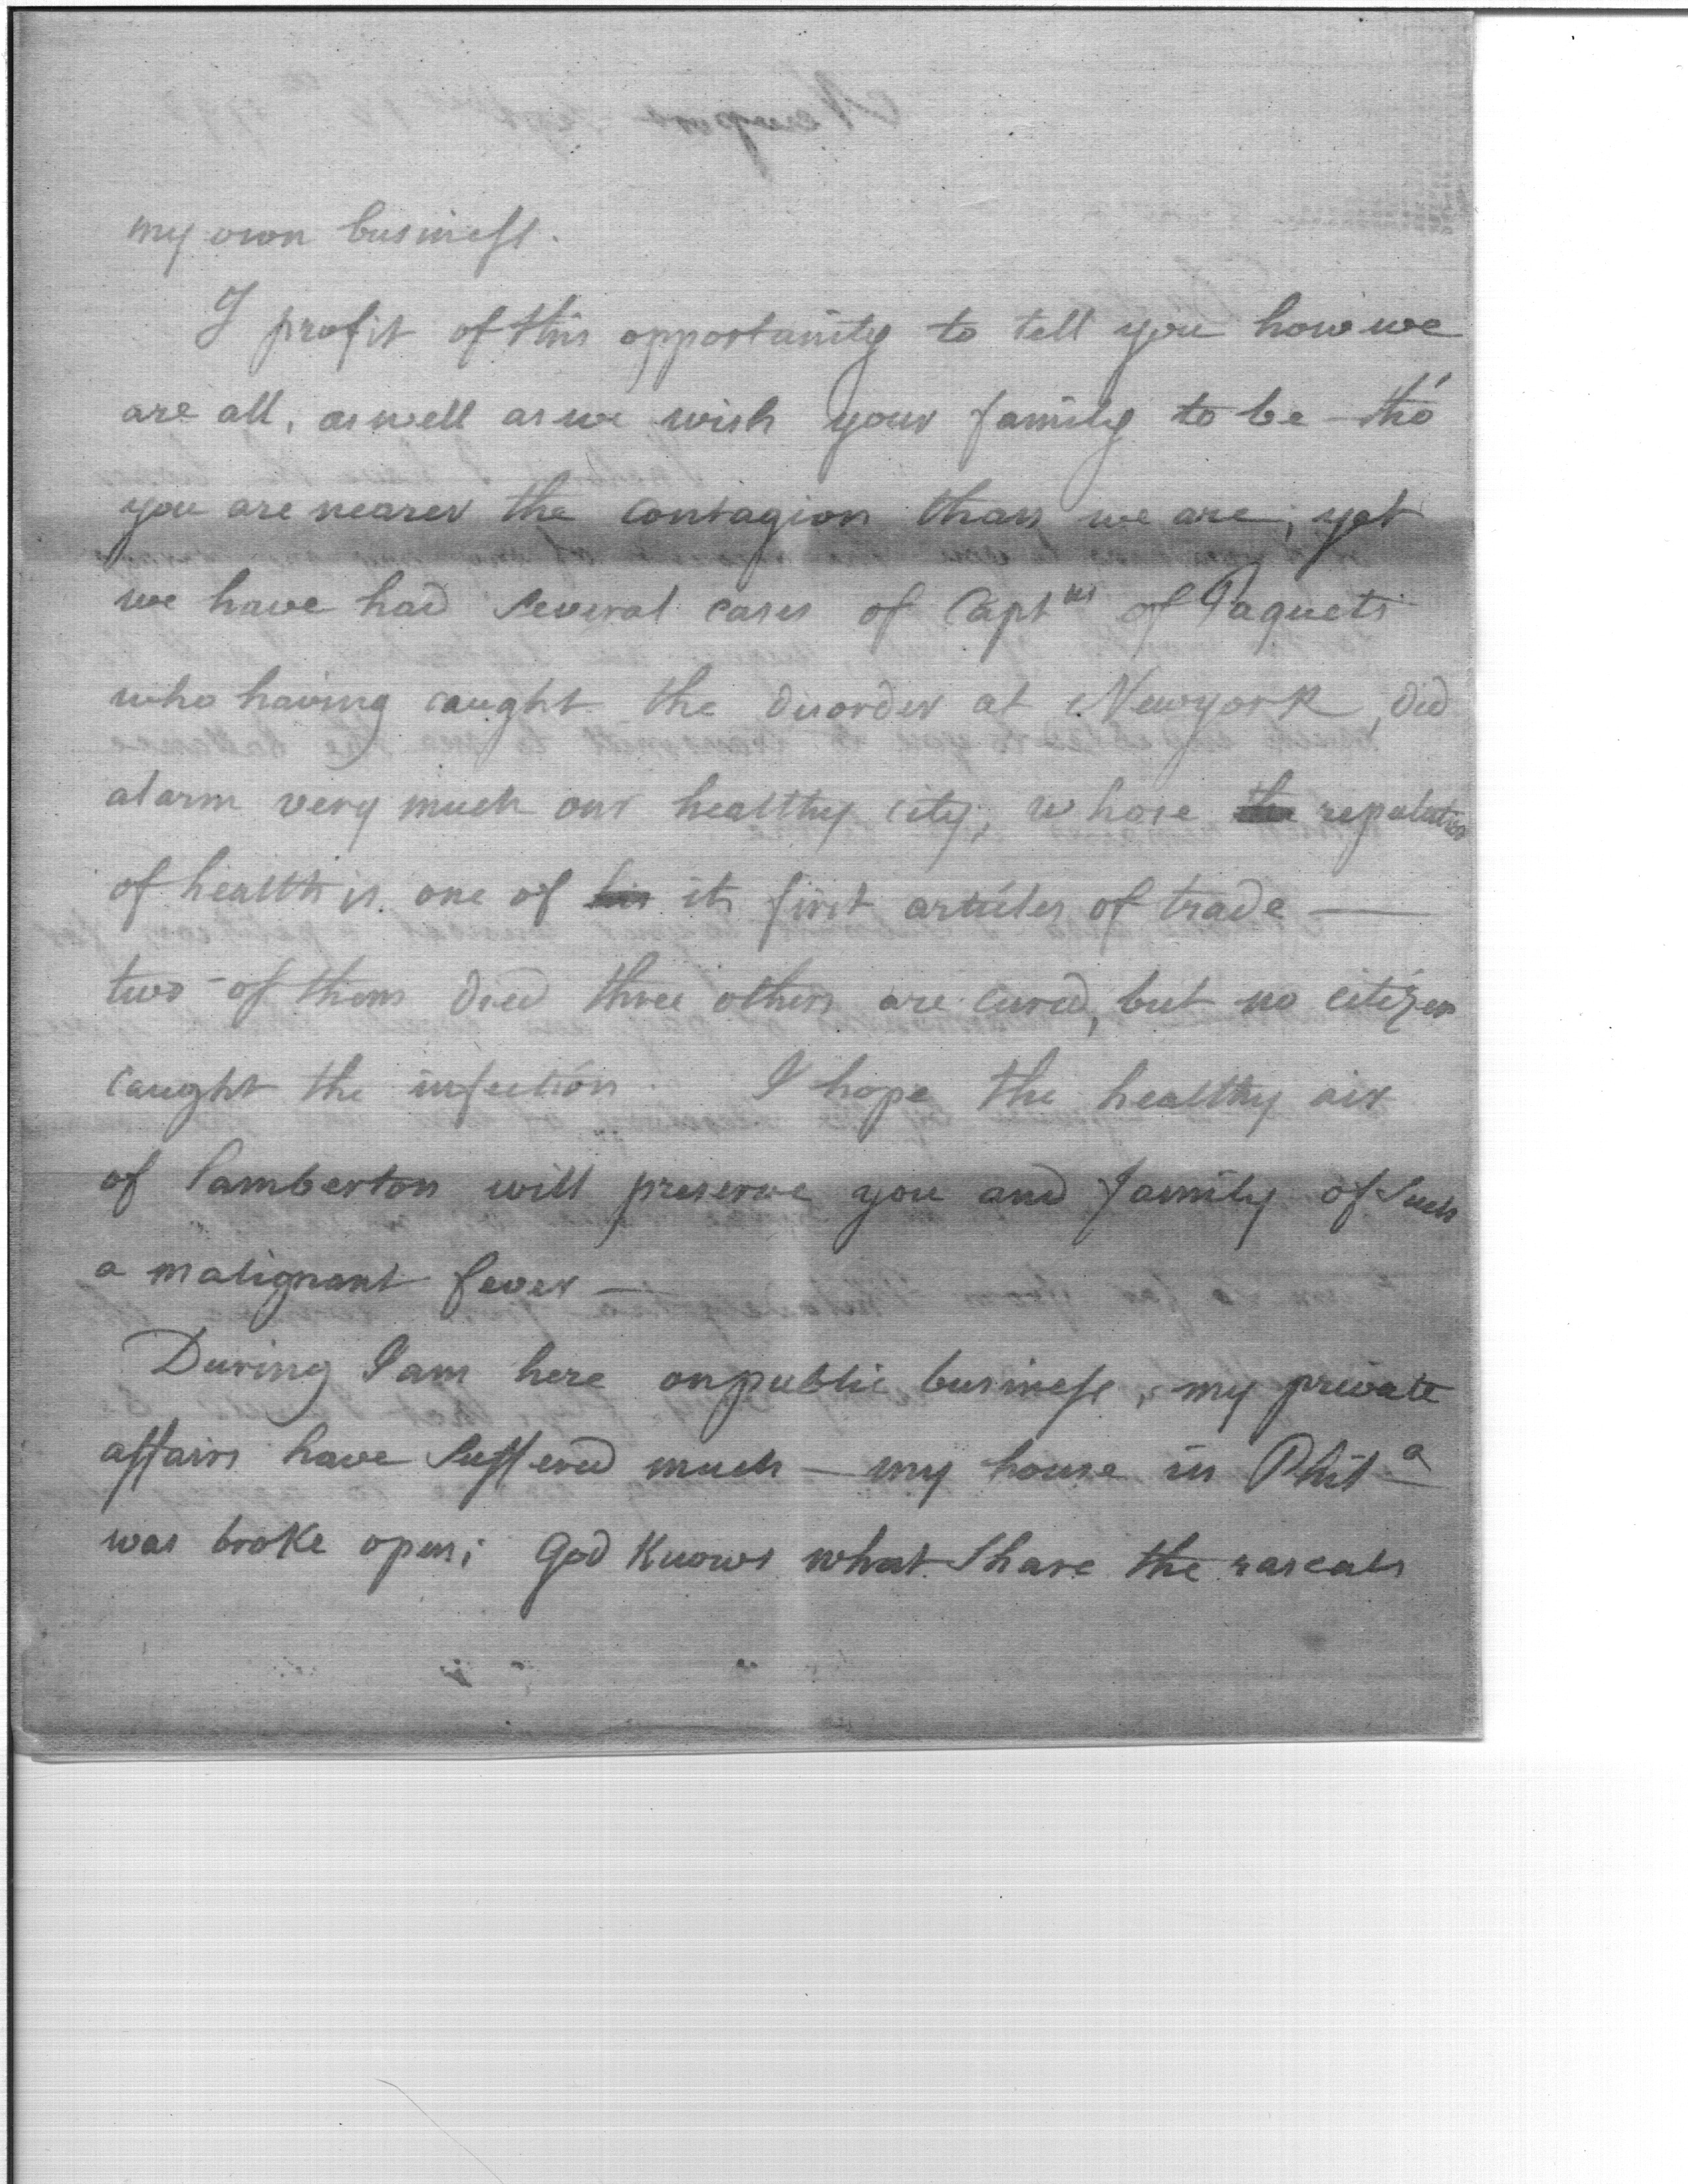 my own business.
I profit of this opportunity to tell you how we
are all, as well as we wish your family to be – tho'
you are nearer the contagion than we are; yet
we have had several cases of Capt.ns of Paquets
who having caught the disorder at Newyork, did
alarm very much our healthy city; whose the reputation
of health is one of his its first articles of trade —
two of them died three others are cured, but no citizen
caught the infection. I hope the healthy air
of Lamberton will preserve you and family of such
a malignant fever —
During I am here on public business, my private
affairs have suffered much — my house in Phil.a
was broke open; God Knows what share the rascals